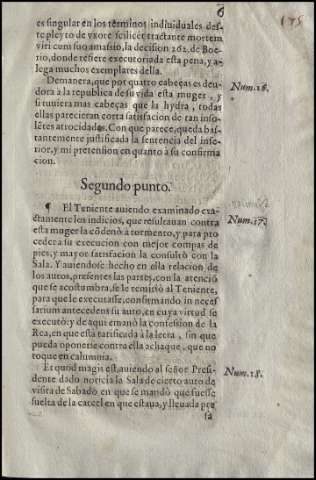 6
175
es singular en los terminos indiuiduales des-
te pleyto de vxore scilicet tractante mortem
viri cum suo amasio, la decision 262. de Boe-
rio, donde refiere executoriada esta pena, y a-
lega muchos exemplares della.
Demanera, que por quatro cabeças es deu-
dora a la republica de su vida esta muger, y
si tuuiera mas cabeças que la hydra, todas
ellas parecieran corta satisfacion de tan inso-
lẽtes atrocidades. Con que parece, queda bas-
tantemente justificada la sentencia del infe-
rior, y mi pretension en quanto à su confirma
cion.
Num. 16.
Segundo punto.
¶ El Teniente auiendo examinado exa-
ctamente los indicios, que resultauan contra
esta muger la cõdenò à tormento, y para pro
ceder à su execucion con mejor compas de
pies, y mayor satisfacion la consultò con la
Sala. Y auiendose hecho en ella relacion de
los autos, presentes las partes, con la atenciõ
que se acostumbra, se le remitiò al Teniente,
para que le executasse, confirmando in neces
sarium antecedens su auto, en cuya virtud se
executò: y de aqui emanò la confession de la
Rea, en que està ratificada à la letra, sin que
pueda oponerse contra ella achaque, que no
toque en calumnia.
Num. 17.
Et quod magis est, auiendo al señor Presi-
dente dado noticia la Sala de cierto auto de
visita de Sabado en que se mandò que fuesse
suelta de la carcel en que estaua, y lleuada pre
sa
Num. 18.